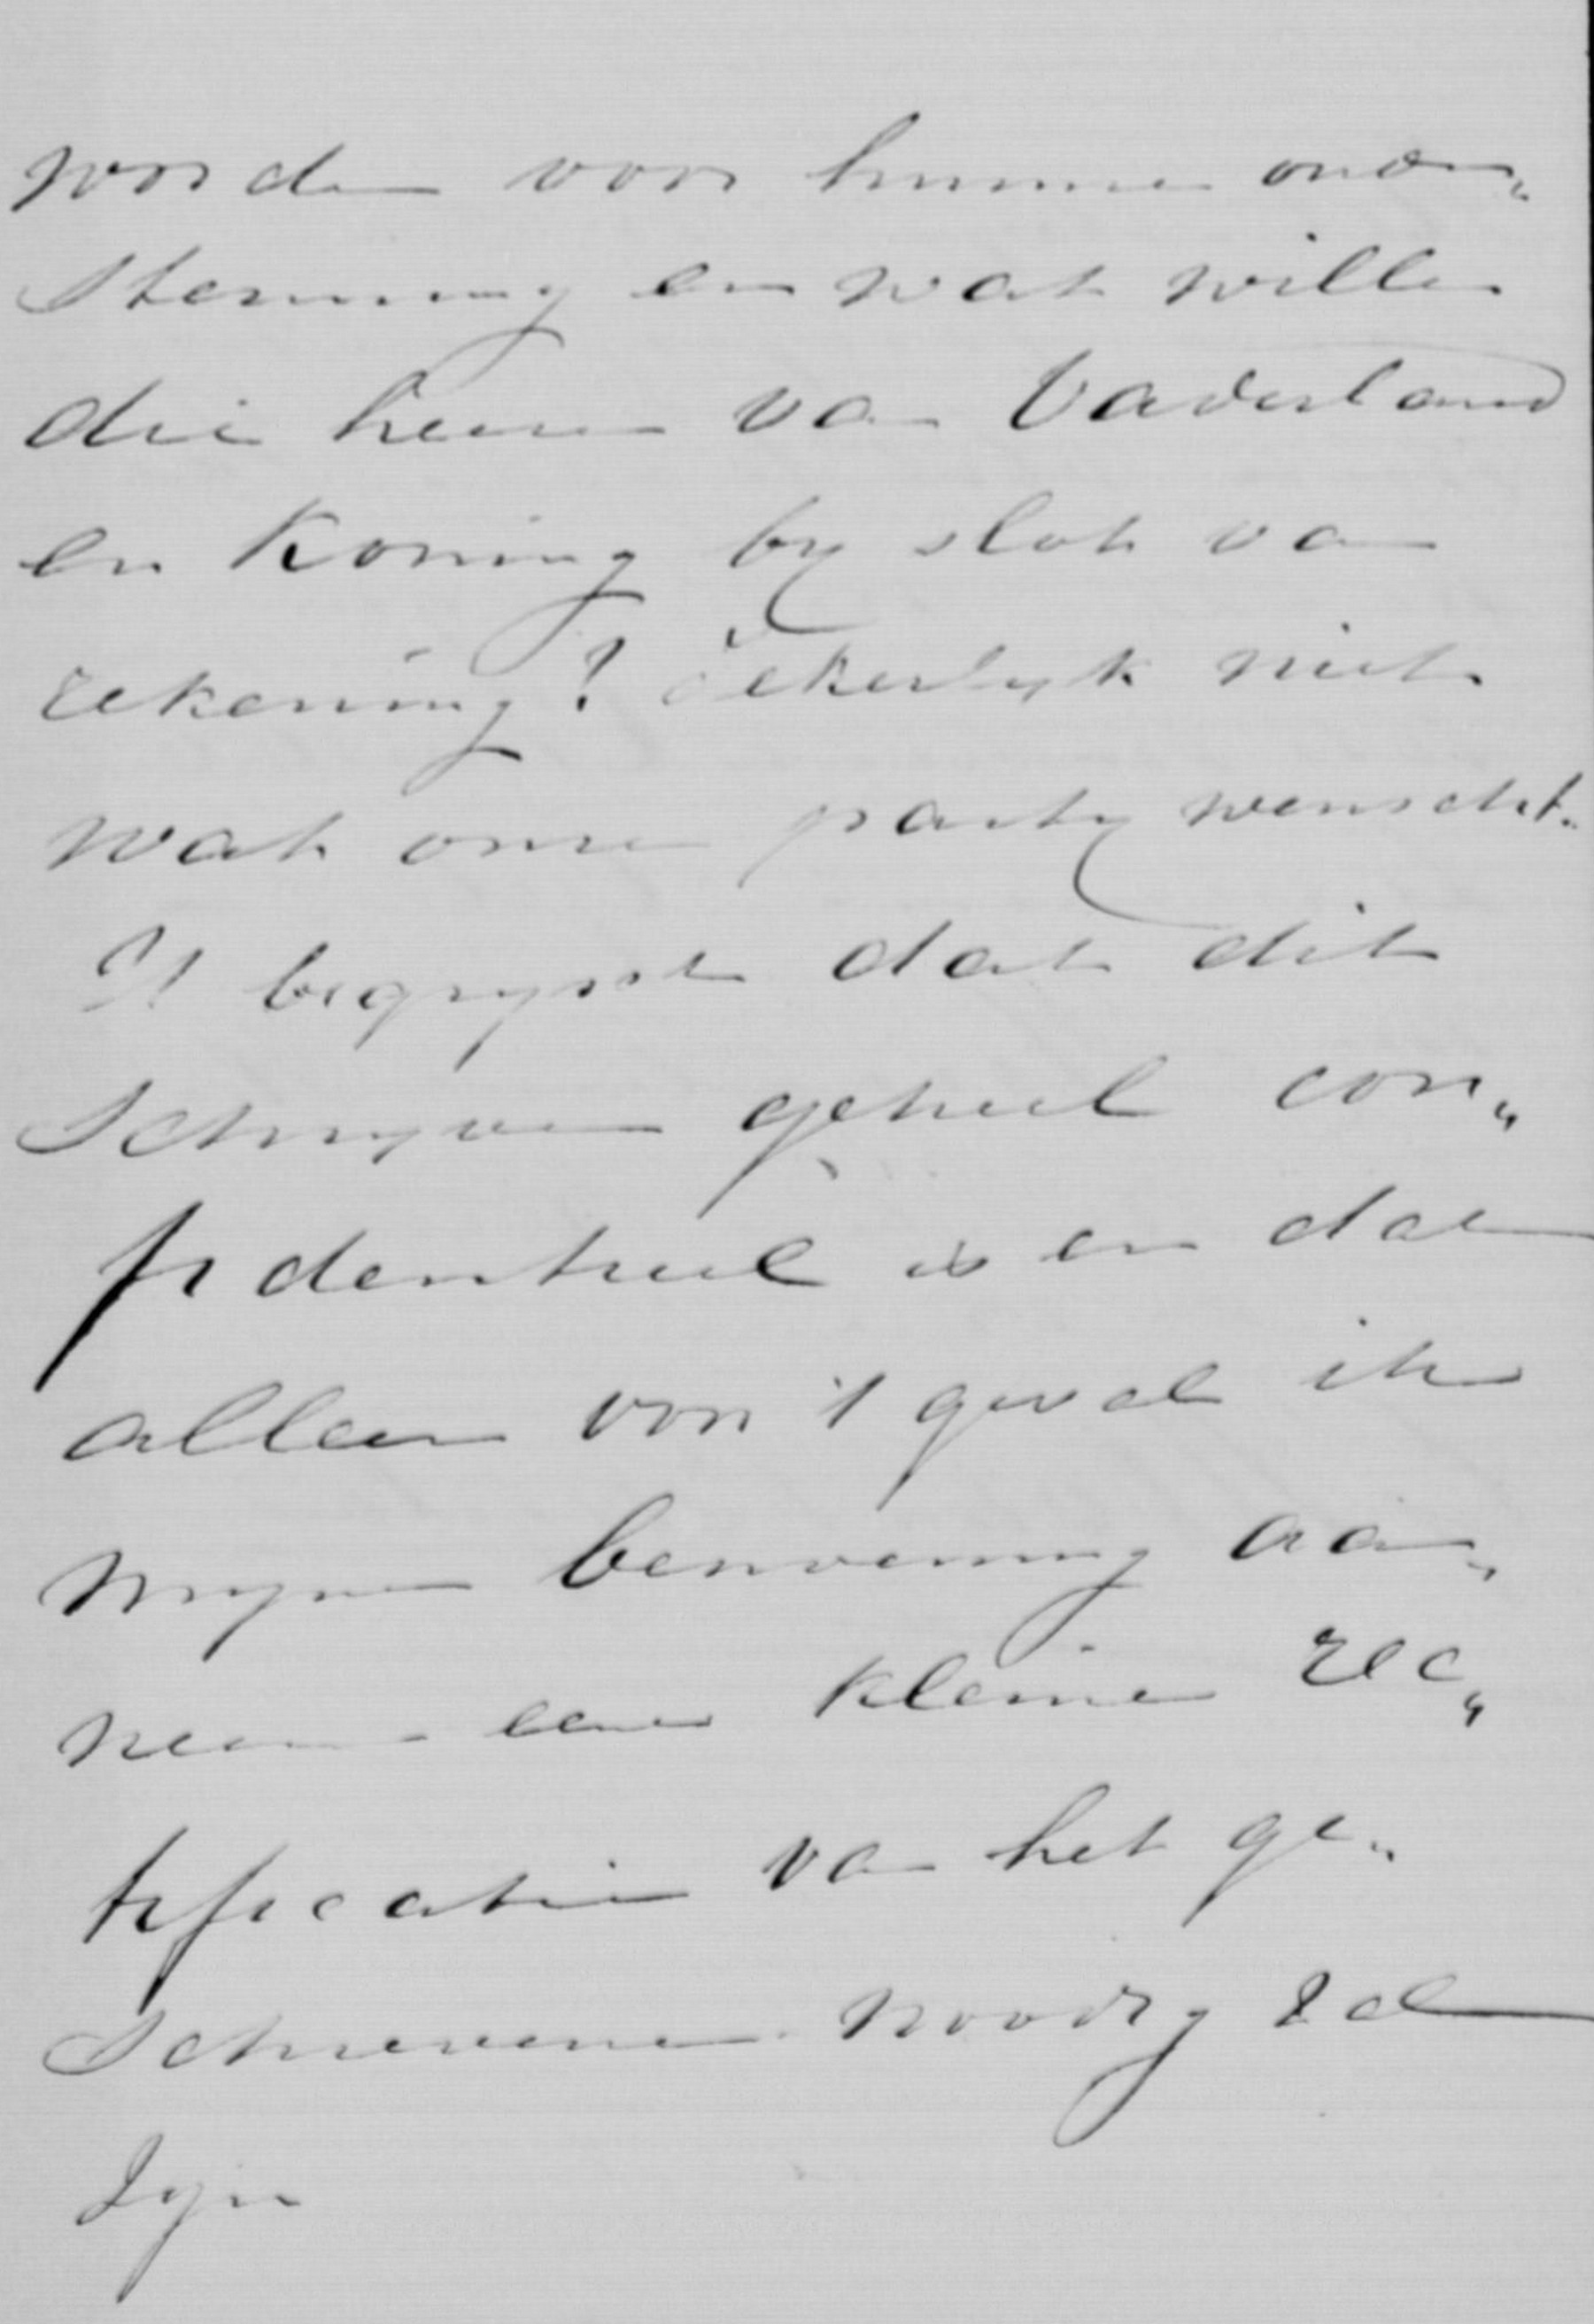 worden voor hunne onder„
stemming en wat willen
die heeren van Vaderland
en Koning by slot van
rekening? Zekerlyk niet
wat onze party wenscht.
U begrypt dat dit
schryven geheel con„
fidentieel is en dat
alleen voor 't geval ik
myne benoeming aan„
neem eene kleine rec„
tificatie van het ge„
schrevene noodig zal
zyn